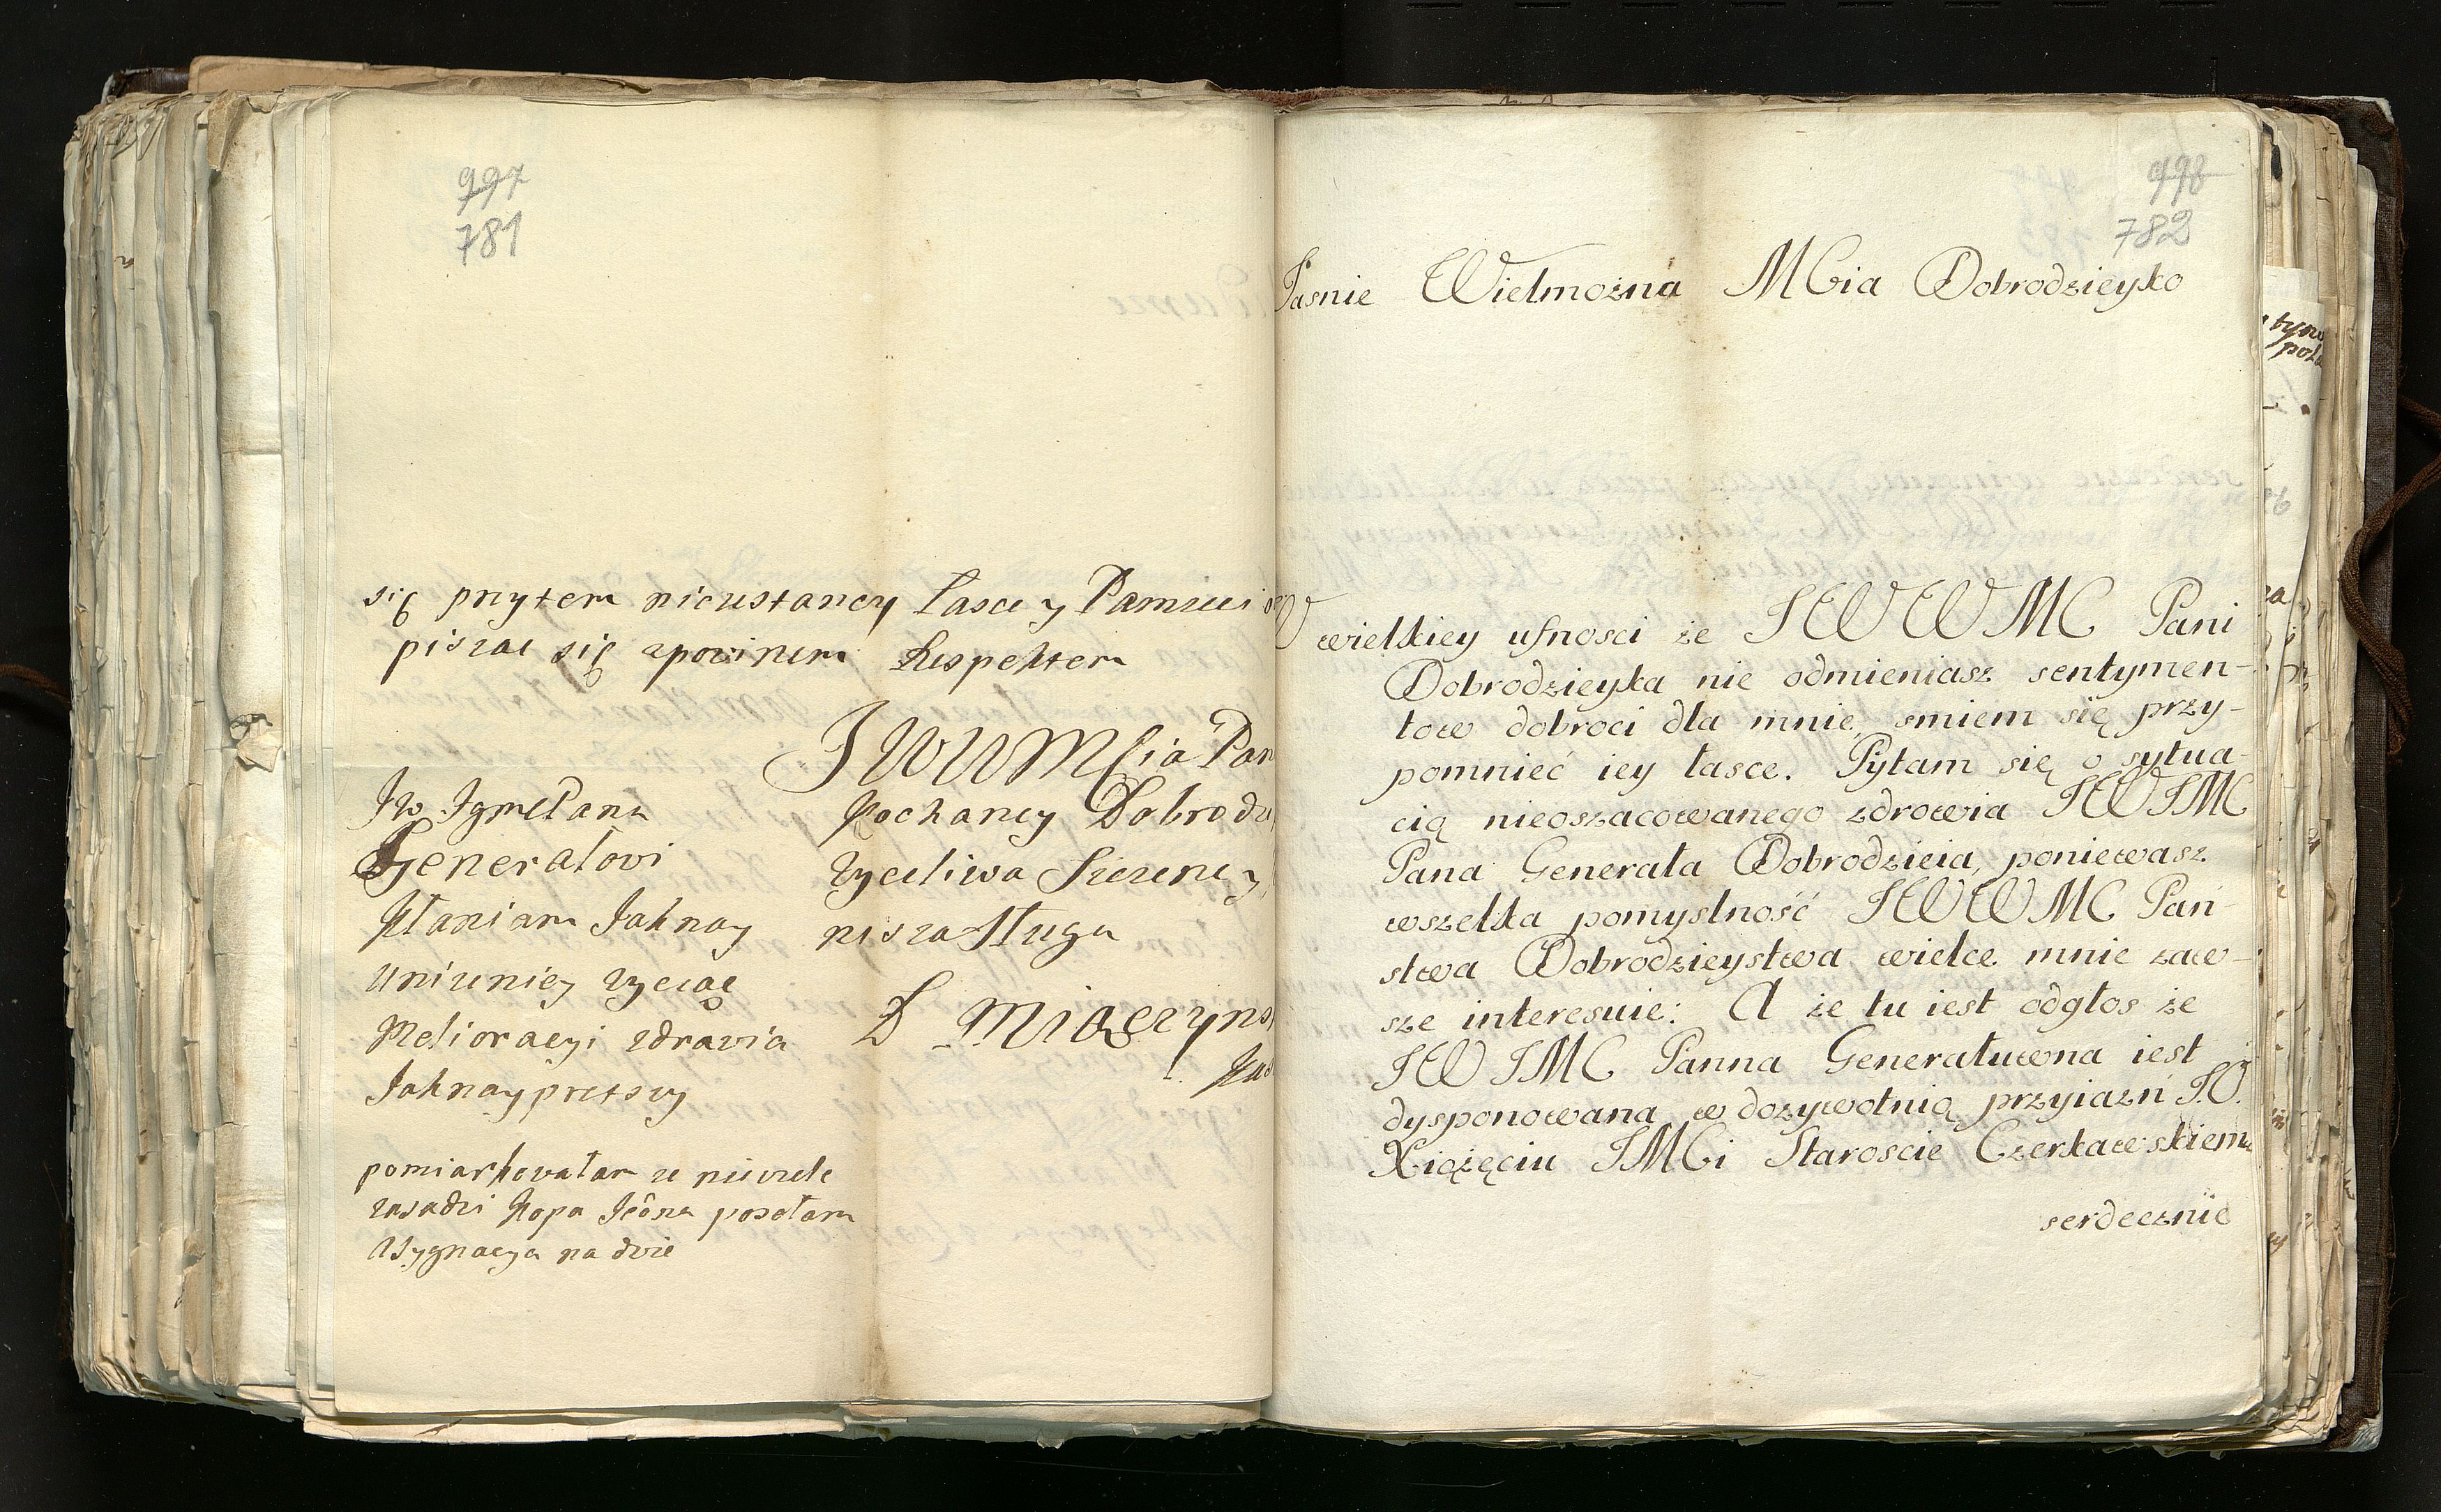 997
781
się przytem nieustaney Lasce y Pamieci
piszac się zpowinem Respektem
JWWMCia Pan
Kochaney Dobrodzi
zyczliwa Szczerze y
nisza Sługa
D Miączyns
JW JgmcPanu
Generałowi
Kłaniam Jaknay
Unizeniey zycząc
Melioracyi zdrawia
Jaknayprętszy
pomiarkovałam ze nievele
zasadzi Kopa posełam
Asygnacya na dvie
998
782
Jasnie Wielmożna MCia Dobrodzieyko
W wielkiey ufnosci że JWWMC Pani
Dobrodzieyka nie odmieniasz sentymen-
tow dobroci dla mnie, smiem się przy-
pomnieć iey łasce. Pytam się o sytua-
cią nieoszacowanego zdrowia JWJMC
Pana Generała Dobrodzieia, poniewasz
wszelka pomyslność JWWMC Pań-
stwa Dobrodzieystwa wielce mnie zaw-
sze interesuie: A że tu iest odgłos że
JWJMC Panna Generałuwna iest
dysponowana w dozywotnią przyiazń J.O.
Xiążęciu JMCi Staroscie Czerkawskiemu
serdecznie